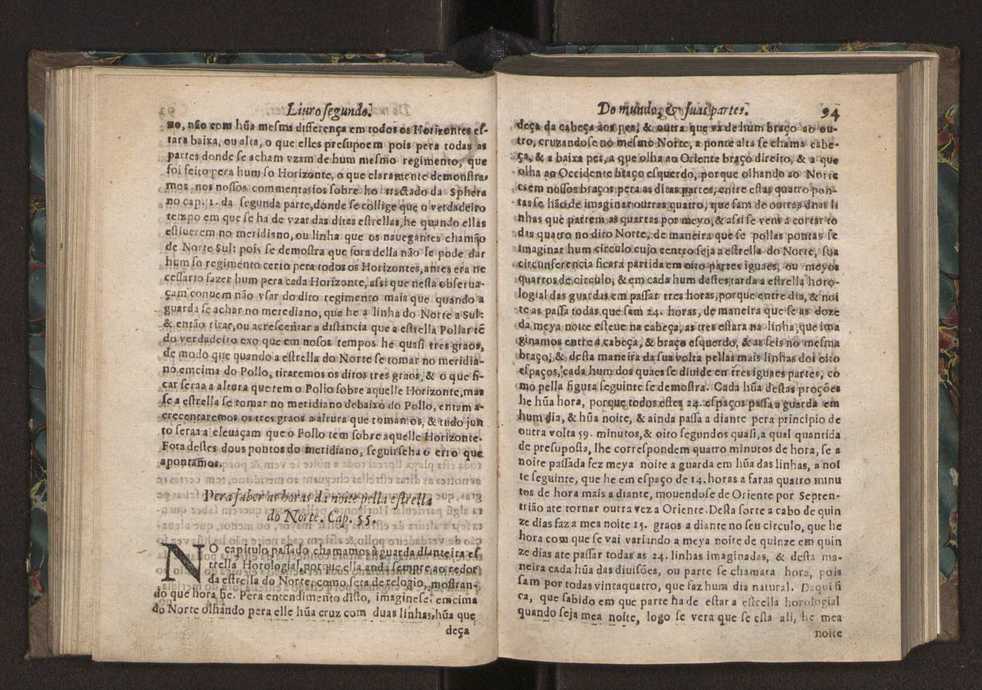 Liuro segundo.
no, não com hũa mesma differença em todos os Horizontes es-
tara baixa, ou alta, o que elles presupoem pois pera todas as
partes donde se acham vzam de hum mesmo regimento, que
foi feito pera hum so Horizonte, o que claramente demonstra-
mos nos nossos commentarios sobre ho tractado da Sphera
no cap: 1. da segunda parte, donde se collige que o verdadeiro
tempo em que se ha de vzar das ditas estrellas, he quando ellas
estiuerem no meridiano, ou linha que os nauegantes chamão
de Norte Sul: pois se demostra que fora della não se pode dar
hum so regimento certo pera todos os Horizontes, antes era ne
cessario fazer hum pera cada Horizonte, assi que nesta obserua-
çam conuem não vsar do dito regimento mais que quando a
guarda se achar no meridiano, que he a linha do Norte a Sul:
& então tirar, ou acrescentar a distancia que a estrella Pollar tẽ
do verdadeiro exo que em nosos tempos he quasi tres graos,
de modo que quando a estrella do Norte se tomar no meridia-
no emcima do Pollo, tiraremos os ditos tres graos, & o que fi-
car seraa a altura que tem o Pollo sobre aquelle Horizonte, mas
se a estrella se tomar no meridiano debaixo do Pollo, entam a-
crecentaremos os tres graos a altura que tomamos, & tudo jun
to seraa a eleuaçam que o Pollo tem sobre aquelle Horizonte.
Fora destes dous pontos do meridiano, seguirseha o erro que
apontamos.
Pera saber as horas da noite pella estrella
do Norte. Cap. 55.
NO capitulo passado chamamos à guarda dianteira es
trella Horologial, porque ella anda sempre ao redor
da estrella do Norte, como seta de relogio, mostran-
do que hora he. Pera entendimento disto, imaginese: emcima
do Norte olhando pera elle hũa cruz com duas linhas, hũa que
deça
Do mundo, & suas partes. 94
deça da cabeça aos pes, & outra que va de hum braço ao ou-
tro, cruzandose no mesmo Norte, a ponte alta se chama cabe-
ça, & a baixa pes, a que olha ao Oriente braço direito, & a que
olha ao Occidente braço esquerdo, porque olhando ao Norte
caem nossos braços pera as ditas partes, entre estas quatro pon-
tas se hão de imaginar outras quatro, que sam de outras duas li
nhas que partem as quartas por meyo, & assi se vem a cortar to
das quatro no dito Norte, de maneira que se pollas pontas se
imaginar hum circulo cujo centro seja a estrella do Norte, sua
circunferencia ficara partida em oito partes iguaes, ou meyos
quartos de circulo, & em cada hum destes tarda a estrella horo-
logial das guardas em passar tres horas, porque entre dia, & noi
te as passa todas que sam 24. horas, de maneira que se as doze
da meya noite esteue na cabeça, as tres estara na linha, que ima
ginamos entre a cabeça, & braço esquerdo, & as seis no mesma
braço, & desta maneira da sua volta pellas mais linhas dos oito
espaços, cada hum dos quaes se diuide em tres iguaes partes, co
mo pella figura seguinte se demostra. Cada hũa destas proções
he hũa hora, porque todos estes 24. espaços passa a guarda em
hum dia, & hũa noite, & ainda passa a diante pera principio de
outra volta 59. minutos, & oito segundos quasi, a qual quantida
de presuposta, lhe correspondem quatro minutos de hora, se a
noite passada fez meya noite a guarda em hũa das linhas, a noi
te seguinte, que he em espaço de 24. horas a faraa quatro minu
tos de hora mais a diante, mouendose de Oriente por Septen-
trião ate tornar outra vez a Oriente. Desta sorte a cabo de quin
ze dias faz a mea noite 15. graos a diante no seu circulo, que he
hora com que se vai variando a meya noite de quinze em quin
ze dias ate passar todas as 24. linhas imaginadas, & desta ma-
neira cada hũa das diuisões, ou parte se chamara hora, pois
sam por todas vintaquatro, que faz hum dia natural. Daqui fi
ca, que sabido em que parte ha de estar a estrella horologial
quando seja mea noite, logo se vera que se esta ali, he mea
noite